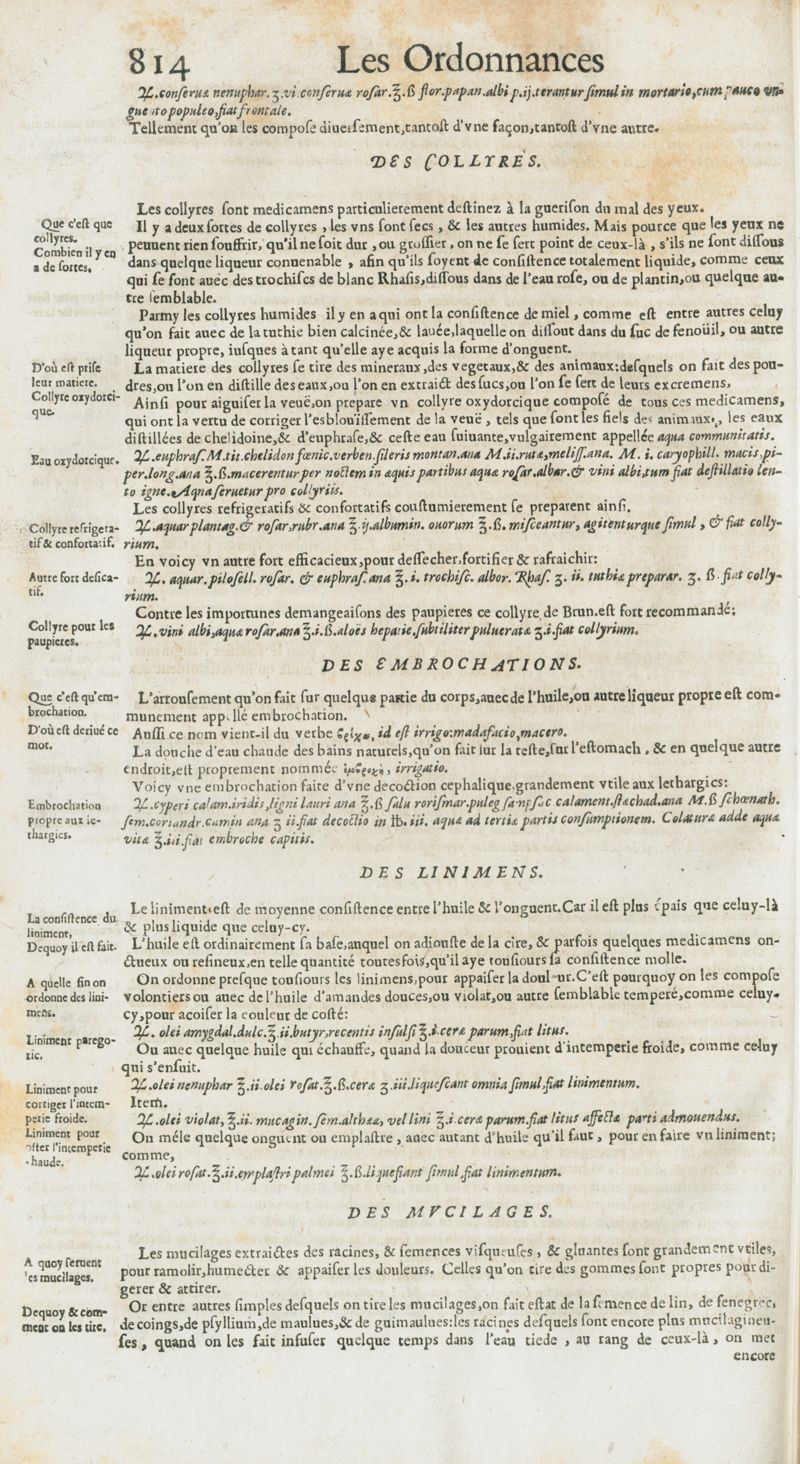 814 Les Ordonnances
℞.conſeruæ nenuphar.ʒ.vi conſeruæ roſar.℥.ß flor.papau.albi p.ij.terantur ſimul in mortario,cum pauco vn-
guento populeo,fiat frontale.
Tellement qu'on les compoſe diuerſement,tantoſt d'vne façon,tantoſt d'vne autre.
DES COLLYRES.
Les collyres ſont medicamens particulierement deſtinez à la gueriſon du mal des yeux.
Que c'eſt que
collyres.
Combien il y en
a de ſortes.
Il y a deux ſortes de collyres , les vns ſont ſecs , & les autres humides. Mais pource que les yeux ne
peuuent rien ſouffrir, qu'il ne ſoit dur , ou groſſier , on ne ſe ſert point de ceux-là , s'ils ne ſont diſſous
dans quelque liqueur conuenable , afin qu'ils ſoyent de conſiſtence totalement liquide, comme ceux
qui ſe font auec des trochiſcs de blanc Rhaſis,diſſous dans de l'eau roſe, ou de plantin,ou quelque au-
tre ſemblable.
Parmy les collyres humides il y en a qui ont la conſiſtence de miel , comme eſt entre autres celuy
qu'on fait auec de la tuthie bien calcinée,& lauée,laquelle on diſſout dans du ſuc de fenoüil, ou autre
liqueur propre, iuſques à tant qu'elle aye acquis la forme d'onguent.
D'où eſt priſe
leur matiere.
Collyre oxydorci-
que.
La matiere des collyres ſe tire des mineraux,des vegetaux,& des animaux:deſquels on fait des pou-
dres,ou l'on en diſtille des eaux,ou l'on en extraict des ſucs,ou l'on ſe ſert de leurs excremens.
Ainſi pour aiguiſer la veuë,on prepare vn collyre oxydorcique compoſé de tous ces medicamens,
qui ont la vertu de corriger l'esblouïſſement de la veuë , tels que ſont les fiels des animaux, les eaux
diſtillées de chelidoine,& d'euphraſe,& ceſte eau ſuiuante,vulgairement appellée aqua communitatis.
Eau oxydorcique.
℞.euphraſ.M.tit.chelidon fœnic.verben.ſileris montan.ana M.ii.rutæ,meliſſ.ana. M. i. caryophill. macis,pi-
per.long.ana ℥.ß.macerentur per noctem in æquis partibus aquæ roſar.albar.& vini albi,tum fiat deſtillatio len-
to igne.Aqna ſeruetur pro collyriis.
Les collyres refrigeratifs & confortatifs couſtumierement ſe preparent ainſi.
Collyre refrigera-
tif & confortatif.
℞.aquar.plantag.& roſar.rubr.ana ℥.ij.albumin. ouorum ℥.ß. miſceantur, agitenturque ſimul , & fiat colly-
rium.
En voicy vn autre fort efficacieux,pour deſſecher,fortifier & rafraichir:
Autre fort deſica-
tif.
℞. aquar.piloſell. roſar. & euphraſ.ana ℥.i. trochiſc. albor. Rhaſ. ʒ. ii. tuthiæ preparar. ʒ. ß.fiat colly-
rium.
Contre les importunes demangeaiſons des paupieres ce collyre de Brun.eſt fort recommandé:
Collyre pour les
paupieres.
℞.vini albi,aquæ roſar.ana ℥.i.ß.aloës hepatie,ſubtiliter puluerata ʒ.i.fiat collyrium.
DES EMBROCHATIONS.
Que c'eſt qu'em-
brochation.
D'où eſt deriué ce
mot.
L'arrouſement qu'on fait ſur quelque partie du corps,auec de l'huile,ou autre liqueur propre eſt com-
munement appellé embrochation.
Auſſi ce nom vient-il du verbe βρέχω, id eſt irrigo:madafacio,macero.
La douche d'eau chaude des bains naturels,qu'on fait ſur la teſte,ſur l'eſtomach , & en quelque autre
endroit,eſt proprement nommée ἐμβροχὴ , irrigatio.
Embrochation
propre aux le-
thargics.
Voicy vne embrochation faite d'vne decoction cephalique,grandement vtile aux lethargics:
℞.cyperi calam.iridis,ligni lauri ana ℥.ß ſalu roriſmar.puleg ſampſ.c calament.ſtæchad.ana M.ß ſchœnath.
ſem.coriandr.cumin ana ʒ ii.fiat decoctio in ℔. iii. aquæ ad tertiæ partis conſumptionem. Colaturæ adde aquæ
vitæ ℥.iii.fiat embroche capitis.
DES LINIMENS.
La conſiſtence du
liniment.
Dequoy il eſt fait.
Le liniment eſt de moyenne conſiſtence entre l'huile & l'onguent.Car il eſt plus épais que celuy-là
& plus liquide que celuy-cy.
L'huile eſt ordinairement ſa baſe,auquel on adiouſte de la cire, & parfois quelques medicamens on-
ctueux ou reſineux,en telle quantité toutesfois,qu'il aye touſiours ſa conſiſtence molle.
A quelle fin on
ordonne des lini-
mens.
On ordonne preſque touſiours les linimens,pour appaiſer la douleur.C'eſt pourquoy on les compoſe
volontiers ou auec de l'huile d'amandes douces,ou violat,ou autre ſemblable temperé,comme celuy-
cy,pour acoiſer la couleur de coſté:
Liniment parego-
ric.
℞. olei amygdal.dulc.℥.ii.butyr.recentis inſulſi ℥.i.ceræ parum,fiat litus.
Ou auec quelque huile qui échauffe, quand la douceur prouient d'intemperie froide, comme celuy
qui s'enſuit.
Liniment pour
corriger l'intem-
perie froide.
℞.olei nenuphar ℥.ii.olei roſat.℥.ß.ceræ ʒ.iii.liqueſcant omnia ſimul,fiat linimentum.
Item.
Liniment pour
oſter l'intemperie
chaude.
℞.olei violat,℥.ii. mucagin. ſem.altheæ, vel lini ℥.i.ceræ parum.fiat litus affectæ parti admouendus.
On méle quelque onguent ou emplaſtre , auec autant d'huile qu'il faut , pour en faire vn liniment;
comme,
℞.olei roſat.℥.ii.emplaſtri palmei ℥.ß.liquefiant ſimul,fiat linimentum.
DES MVCILAGES.
A quoy ſeruent
les mucilages.
Les mucilages extraictes des racines, & ſemences viſqueuſes , & gluantes ſont grandement vtiles,
pour ramolir,humecter & appaiſer les douleurs. Celles qu'on tire des gommes ſont propres pour di-
gerer & attirer.
Dequoy & com-
ment on les tire.
Or entre autres ſimples deſquels on tire les mucilages,on fait eſtat de la ſemence de lin, de fenegrec,
de coings,de pſyllium,de maulues,& de guimaulues:les racines deſquels ſont encore plus mucilagineu-
ſes , quand on les fait infuſer quelque temps dans l'eau tiede , au rang de ceux-là , on met
encore